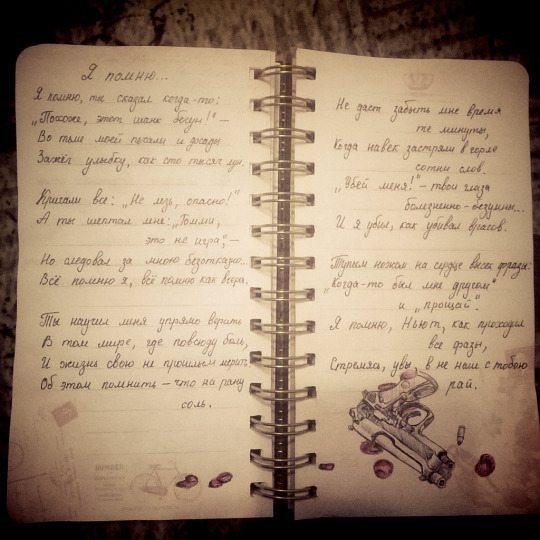 Я помню...
Я помню, ты сказал когда-то:
„Похоже, этот шанк бегун!" —
Во тьме моей печали и досады
Зажёг улыбку, как сто тысяч лун.
Кричали все: „Не лезь, опасно!"
А ты шептал мне: „Томми,
это не игра", —
Но следовал за мною безотказно...
Всё помню я, всё помню как вчера.
Ты научил меня упрямо верить
В том мире, где повсюду боль,
И жизнь свою не прошлым мерить,
Об этом помнить — что на рану
соль.
Не даст забыть мне время
те минуты,
Когда навек застряли в горле
сотни слов.
„Убей меня!" – твои глаза
болезненно-безумны...
И я убил, как убивал врагов.
Тупым ножом на сердце висек фразы:
„Когда-то был мне другом"
и „прощай".
Я помню, Ньют, как проходил
все фазы,
Стремясь, увы, в не наш с тобою
рай.